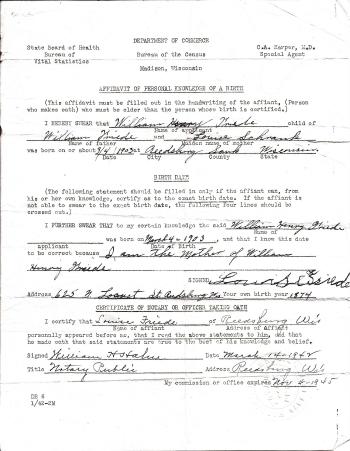 DEPARTMENT OF COMMERCE
State Board of Health
Bureau of
Vital Statistics
Bureau of the Census
C.A. Harper, M.D.
Special Agent
Madison, Wisconsin
AFFIDAVIT OF PERSONAL KNOWLEDGE OF A BIRTH
(This affidavit must be filled out in the handwriting of the affiant, (Person
who makes oath) who must be older than the person whose birth is certified.)
I HEREBY SWEAR that William Henry Friede child of
Name of applicant
William Friede and Louise Schrank
Name of father Maiden name of mother
was born on or about 3/4 1903 at Reedsburg Sauk Wisconsin
Date City County State
BIRTH DATE
(The following statement should be filled in only if the affiant can, from
his or her own knowledge, certify as to the exact birth date. If the affiant is
not able to swear to the exact birth date, the following four lines should be
crossed out.)
I FURTHER SWEAR that to my certain knowledge the said William Henry Friede
Name of
was born on March 4 - 1903, and that I know this date
applicant Date of Birth
to be correct because I am the Mother of William
Henry Friede
SIGNED Louise Friede
Address 625 N Locust St Reedsburg Wis Your own birth year 1874
CERTIFICATE OF NOTARY OR OFFICER TAKING OATH
I certify that Louise Friede of Reedsburg Wis
Name of affiant Address of Affiant
personally appeared before me, that I read the above statements to him, and that
he made oath that said statements are true to the best of his knowledge and belief.
Signed William H Hahn Date March 14-1942
Title Notary Public Address Reedsburg Wis
My commission or office expires Nov 4-1945
DB 6
1/42-2M